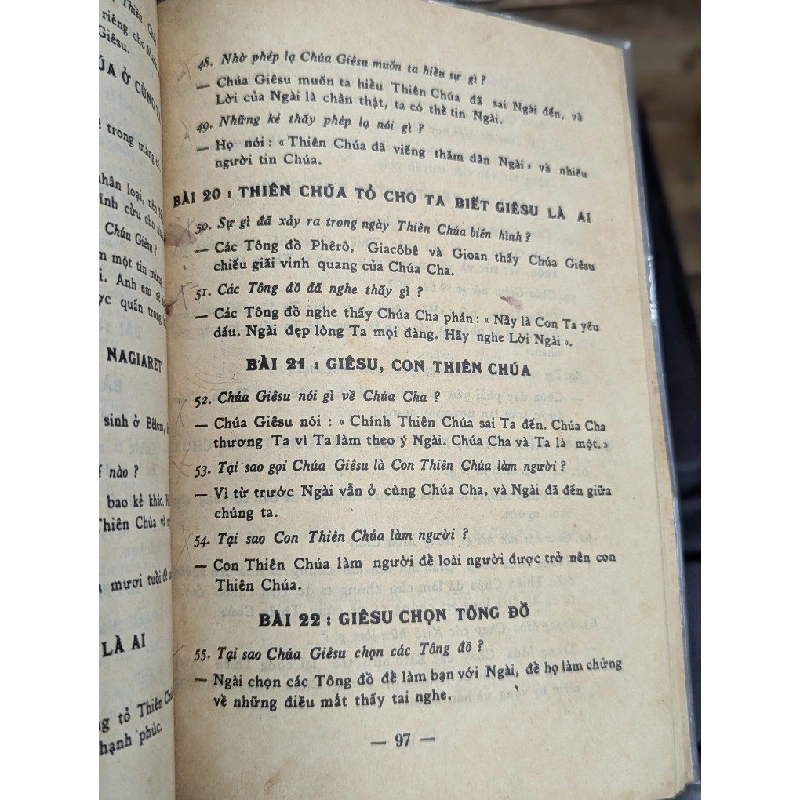 riêng cho
Giêsu.
ÚA Ở CÙNG
trong
nhân loại,
Chúa Giêsu ?
một tin
i. Anh em
ực quấn trong
NAGIARET
sinh ở Bêlem,
ế nào ?
bao kẻ khác.
Thiên Chúa
mươi tuổi
LÀ AI
ng tỏ Thiên
hạnh phúc.
48. Nhờ phép lạ Chúa Giêsu muốn ta hiểu sự gì ?
— Chúa Giêsu muốn ta hiểu Thiên Chúa đã sai Ngài đến, và
Lời của Ngài là chân thật, ta có thể tin Ngài.
49. Những kẻ thấy phép lạ nói gì ?
— Họ nói : « Thiên Chúa đã viếng thăm dân Ngài » và nhiều
người tin Chúa.
BÀI 20 : THIÊN CHÚA TỎ CHO TA BIẾT GIÊSU LÀ AI
50. Sự gì đã xảy ra trong ngày Thiên Chúa biến hình ?
— Các Tông đồ Phêrô, Giacôbê và Gioan thấy Chúa Giêsu
chiếu giãi vinh quang của Chúa Cha.
51. Các Tông đồ đã nghe thấy gì ?
— Các Tông đồ nghe thấy Chúa Cha phán : « Nầy là Con Ta yêu
dấu. Ngài đẹp lòng Ta mọi đàng. Hãy nghe Lời Ngài ».
BÀI 21 : GIÊSU, CON THIÊN CHÚA
52. Chúa Giêsu nói gì về Chúa Cha ?
— Chúa Giêsu nói : « Chính Thiên Chúa sai Ta đến. Chúa Cha
thương Ta vì Ta làm theo ý Ngài. Chúa Cha và Ta là một.»
53. Tại sao gọi Chúa Giêsu là Con Thiên Chúa làm người ?
— Vì từ trước Ngài vẫn ở cùng Chúa Cha, và Ngài đã đến giữa
chúng ta.
54. Tại sao Con Thiên Chúa làm người ?
— Con Thiên Chúa làm người để loài người được trở nên con
Thiên Chúa.
BÀI 22 : GIÊSU CHỌN TÔNG ĐỒ
55. Tại sao Chúa Giêsu chọn các Tông đồ ?
— Ngài chọn các Tông đồ để làm bạn với Ngài, để họ làm chứng
về những điều mắt thấy tai nghe.
— 97 —